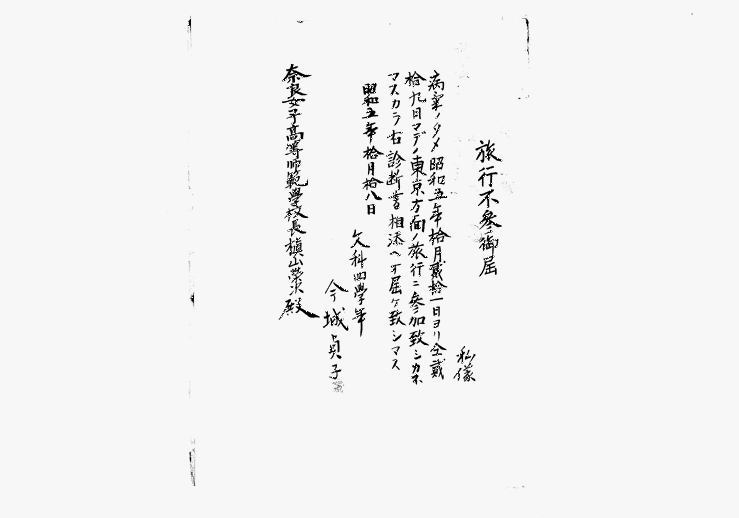 旅行不参御届
私儀
病氣ノタメ昭和五年拾月貳拾一日ヨリ仝貳
拾九日マデノ東京方面ノ旅行ニ參加致シカネ
マスカラ右診断書相添ヘ御届ケ致シマス
昭和五年拾月拾八日
文科四學年
今城貞子
奈良女子高等師範學校長槇山榮次殿